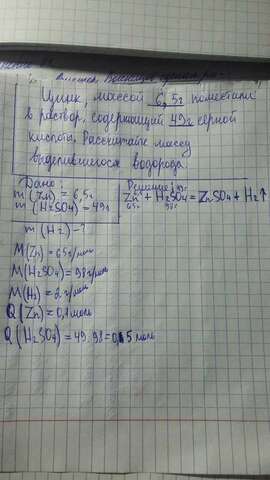 Цинк, массой 6,5г поместили
в раствор, содержащий 49г серной
кислоты. Рассчитайте массу
выделившегося водорода.
Дано
Решение
m (Zn) = 6,5г
m (H2SO4) = 49г
Zn + H2SO4 = ZnSO4 + H2↑
65г 98г
m (H2) - ?
M(Zn) = 65г/моль
M(H2SO4) = 98г/моль
M(H2) = 2г/моль
Q(Zn) = 0,1 моль
Q(H2SO4) = 49:98 = 0,5 моль